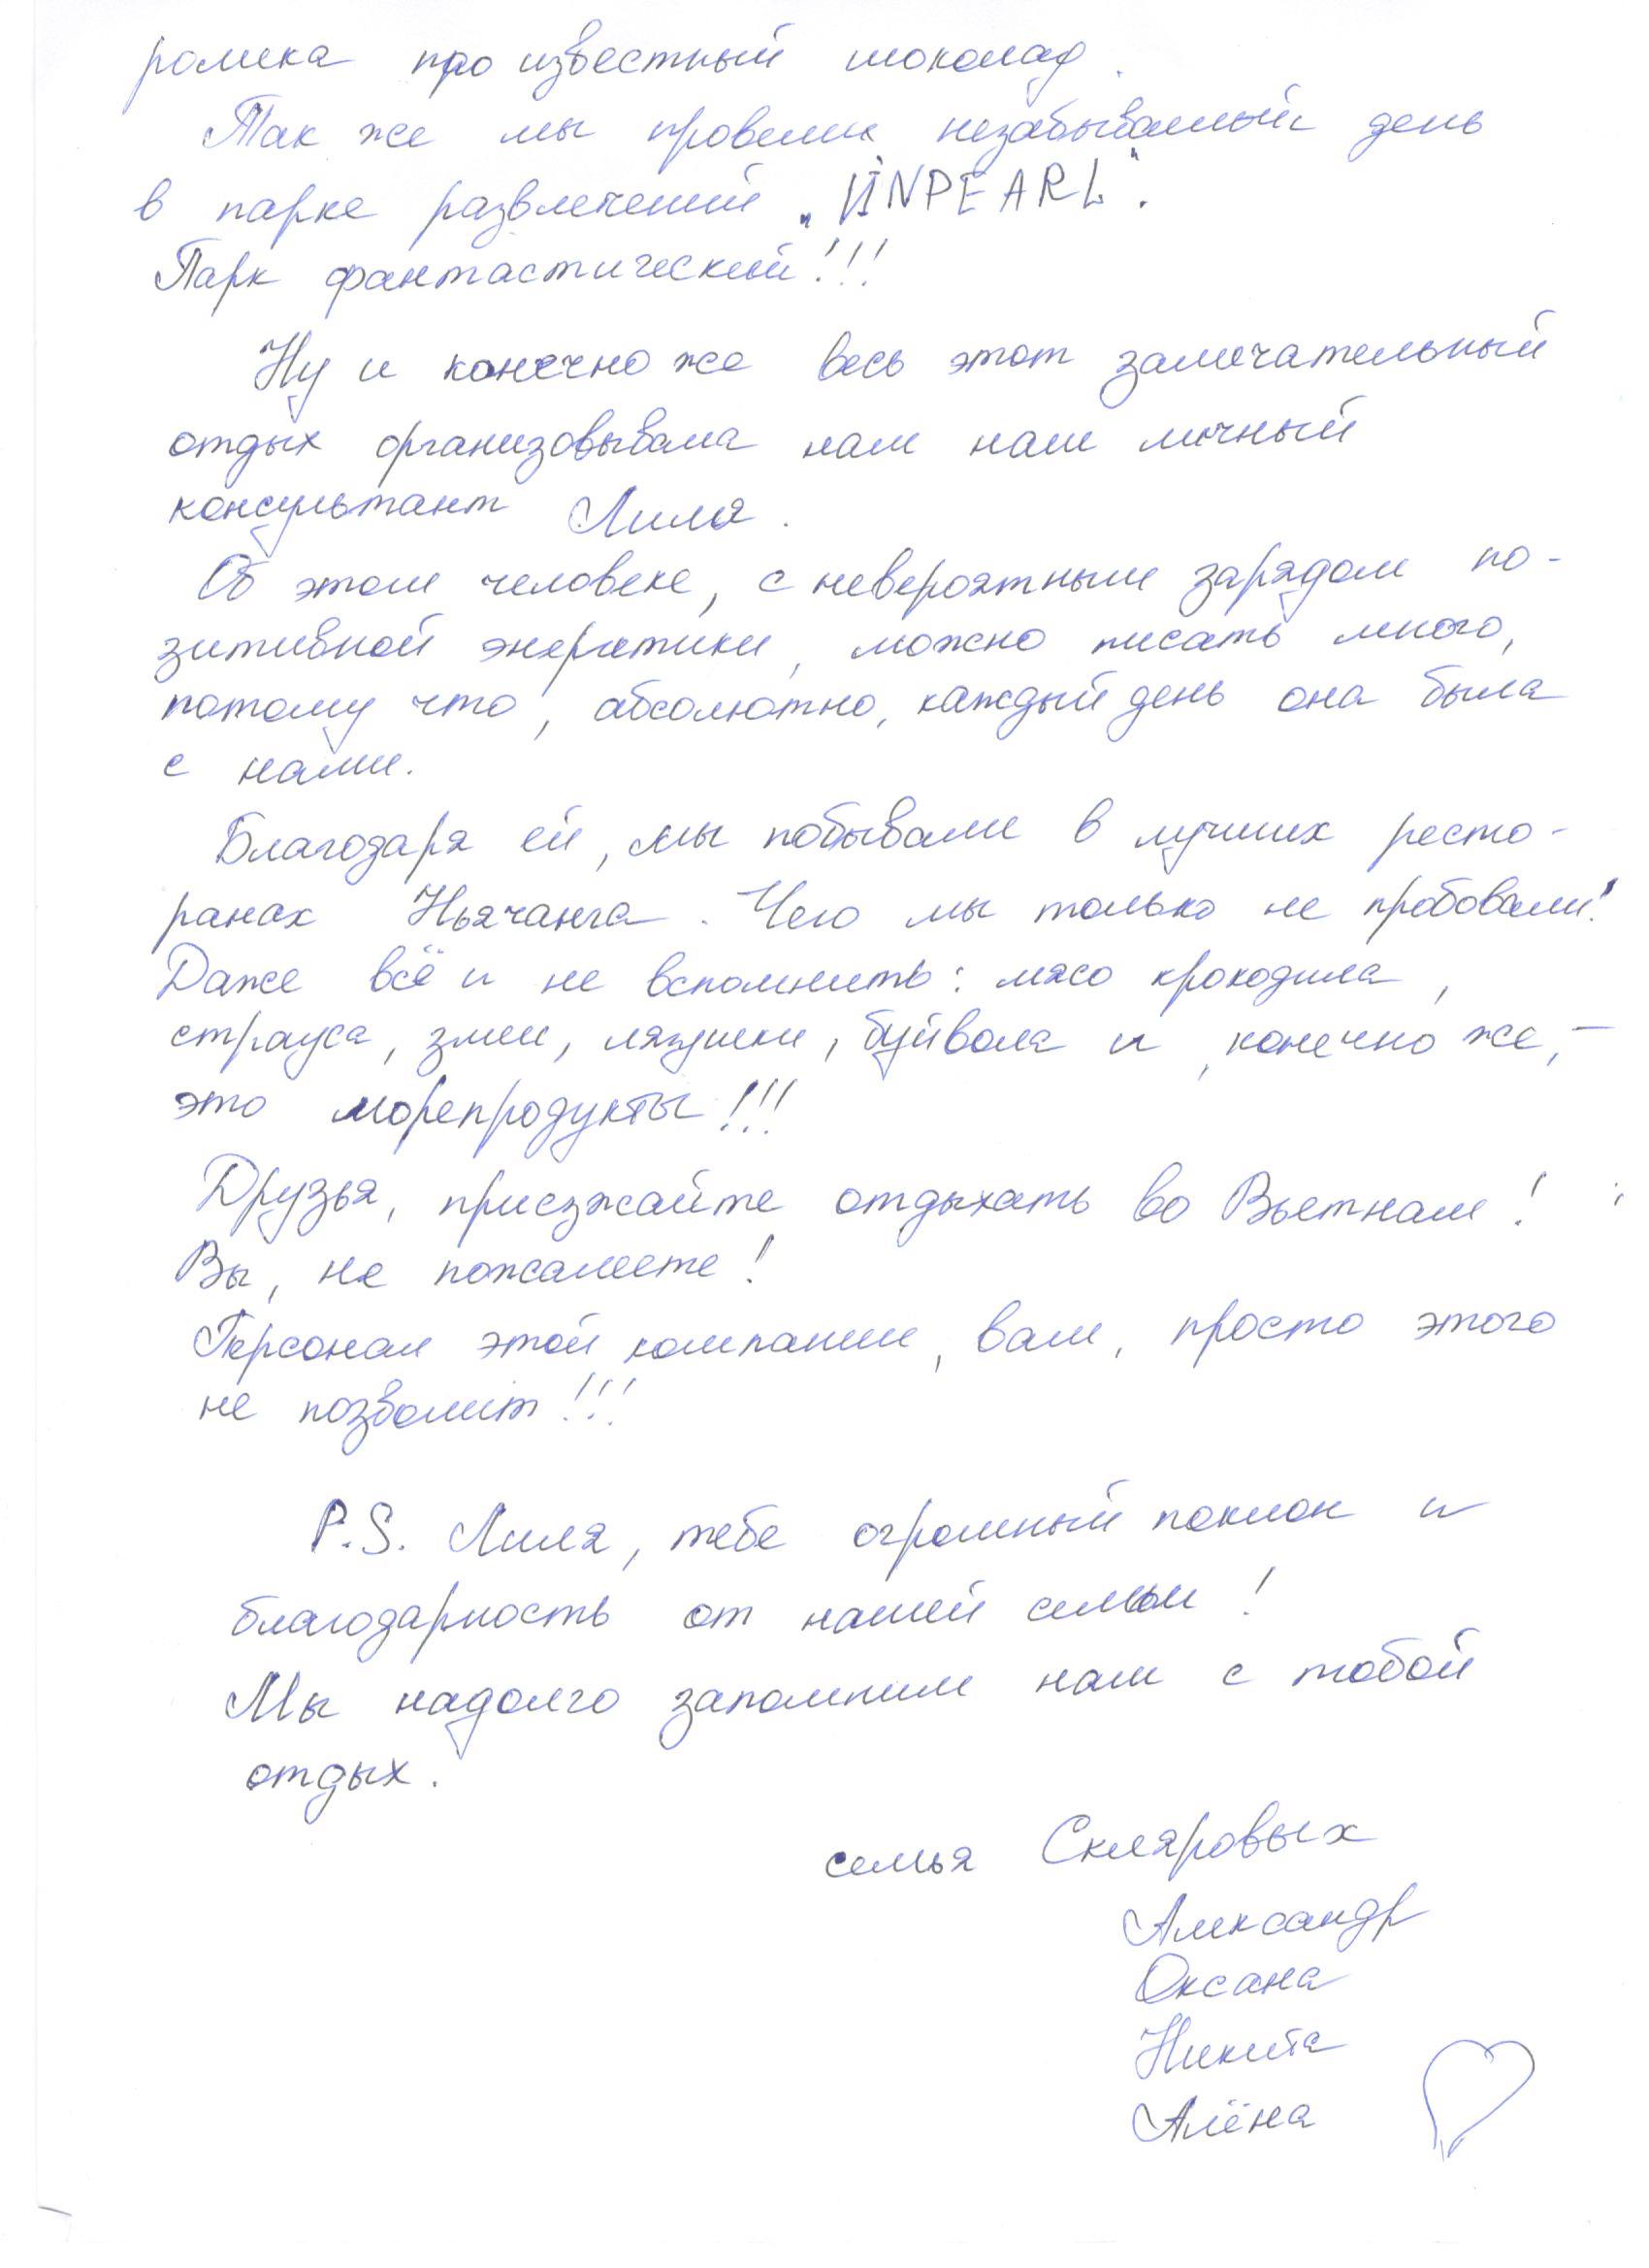 ролика про известный шоколад.
Так же мы провели незабываемый день
в парке развлечений „VINPEARL".
Парк фантастический!!!
Ну и конечно же весь этот замечательный
отдых организовывала нам наш личный
консультант Лиля.
Об этом человеке, с невероятным зарядом по-
зитивной энергетики, можно писать много,
потому что, абсолютно, каждый день она была
с нами.
Благодаря ей, мы побывали в лучших ресто-
ранах Ньячанга. Чего мы только не пробовали!
Даже всё и не вспомнить: мясо крокодила,
страуса, змеи, лягушки, буйвола и, конечно же, –
это морепродукты!!!
Друзья, приезжайте отдыхать во Вьетнам!
Вы, не пожалеете!
Персонал этой компании, вам, просто этого
не позволит!!!
P.S. Лиля, тебе огромный поклон и
благодарность от нашей семьи!
Мы надолго запомним наш с тобой
отдых.
семья Скляровых
Александр
Оксана
Никита
Алёна